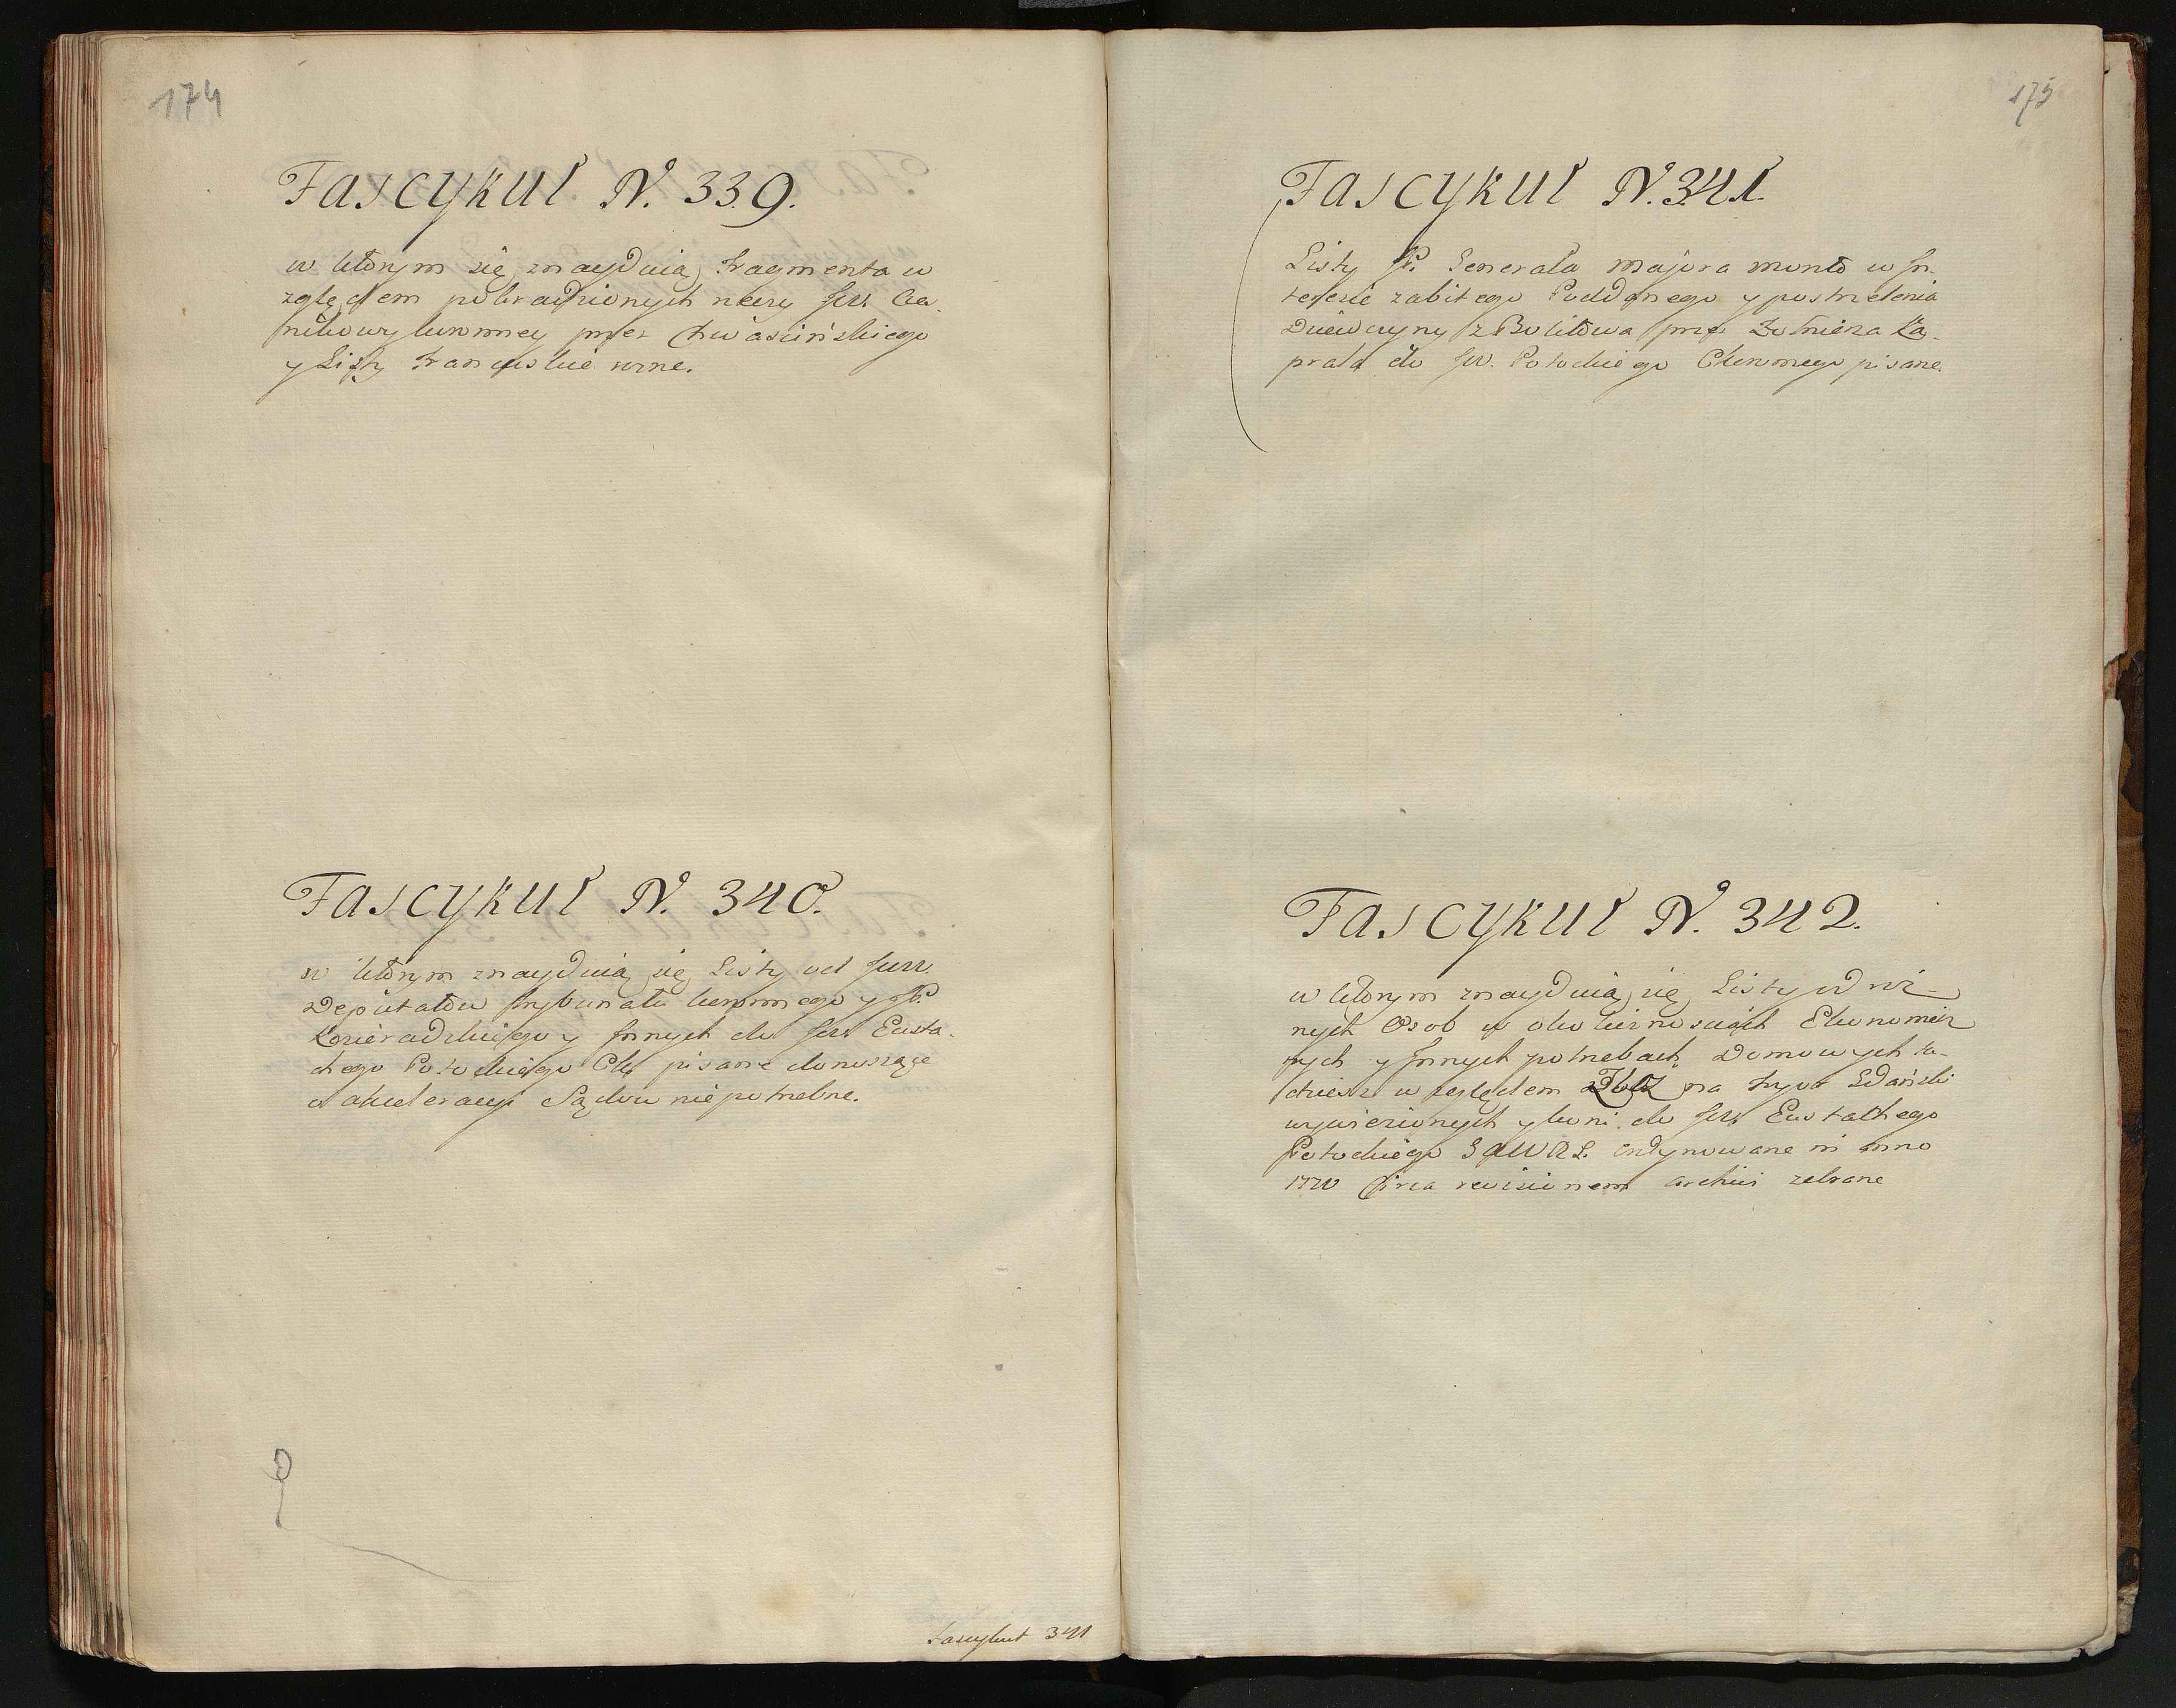 174
Fascykuł N. 339.
w ktorym się znayduią fragmenta w
zględem pokradzionych rzeczy JW.
przez Chwascinskiego
y Listy francuskie rozne.
Fascykuł N. 340.
w ktorym znayduią się Listy od JWW.
Deputatow Trybunału koronnego y JP.
Kozieradzkiego y Innych do JW Eusta-
chego Potockiego pisane donoszące
o akceleracyi Sądow nie potrzebne.
Fascykuł 341
175
Fascykuł N. 341.
Listy JP. Generała Majora w In-
teresie zabitego Poddanego y postrzelenia
Dziewczyny z przez Zołnierza Ka-
prala do JW. Potockiego pisane.
Fascykuł N. 342.
w ktorym znayduią się Listy od roż-
nych Osob w okolicznosciach Ekonomicz
nych y Innych potrzebach Domowych ta-
dziesz względem Zboż na Fryor Gdański
wywiezionych y koni do JW Eustachego
Potockiego G A W K L. ordynowane in anno
circa revisionem archivi zebrane